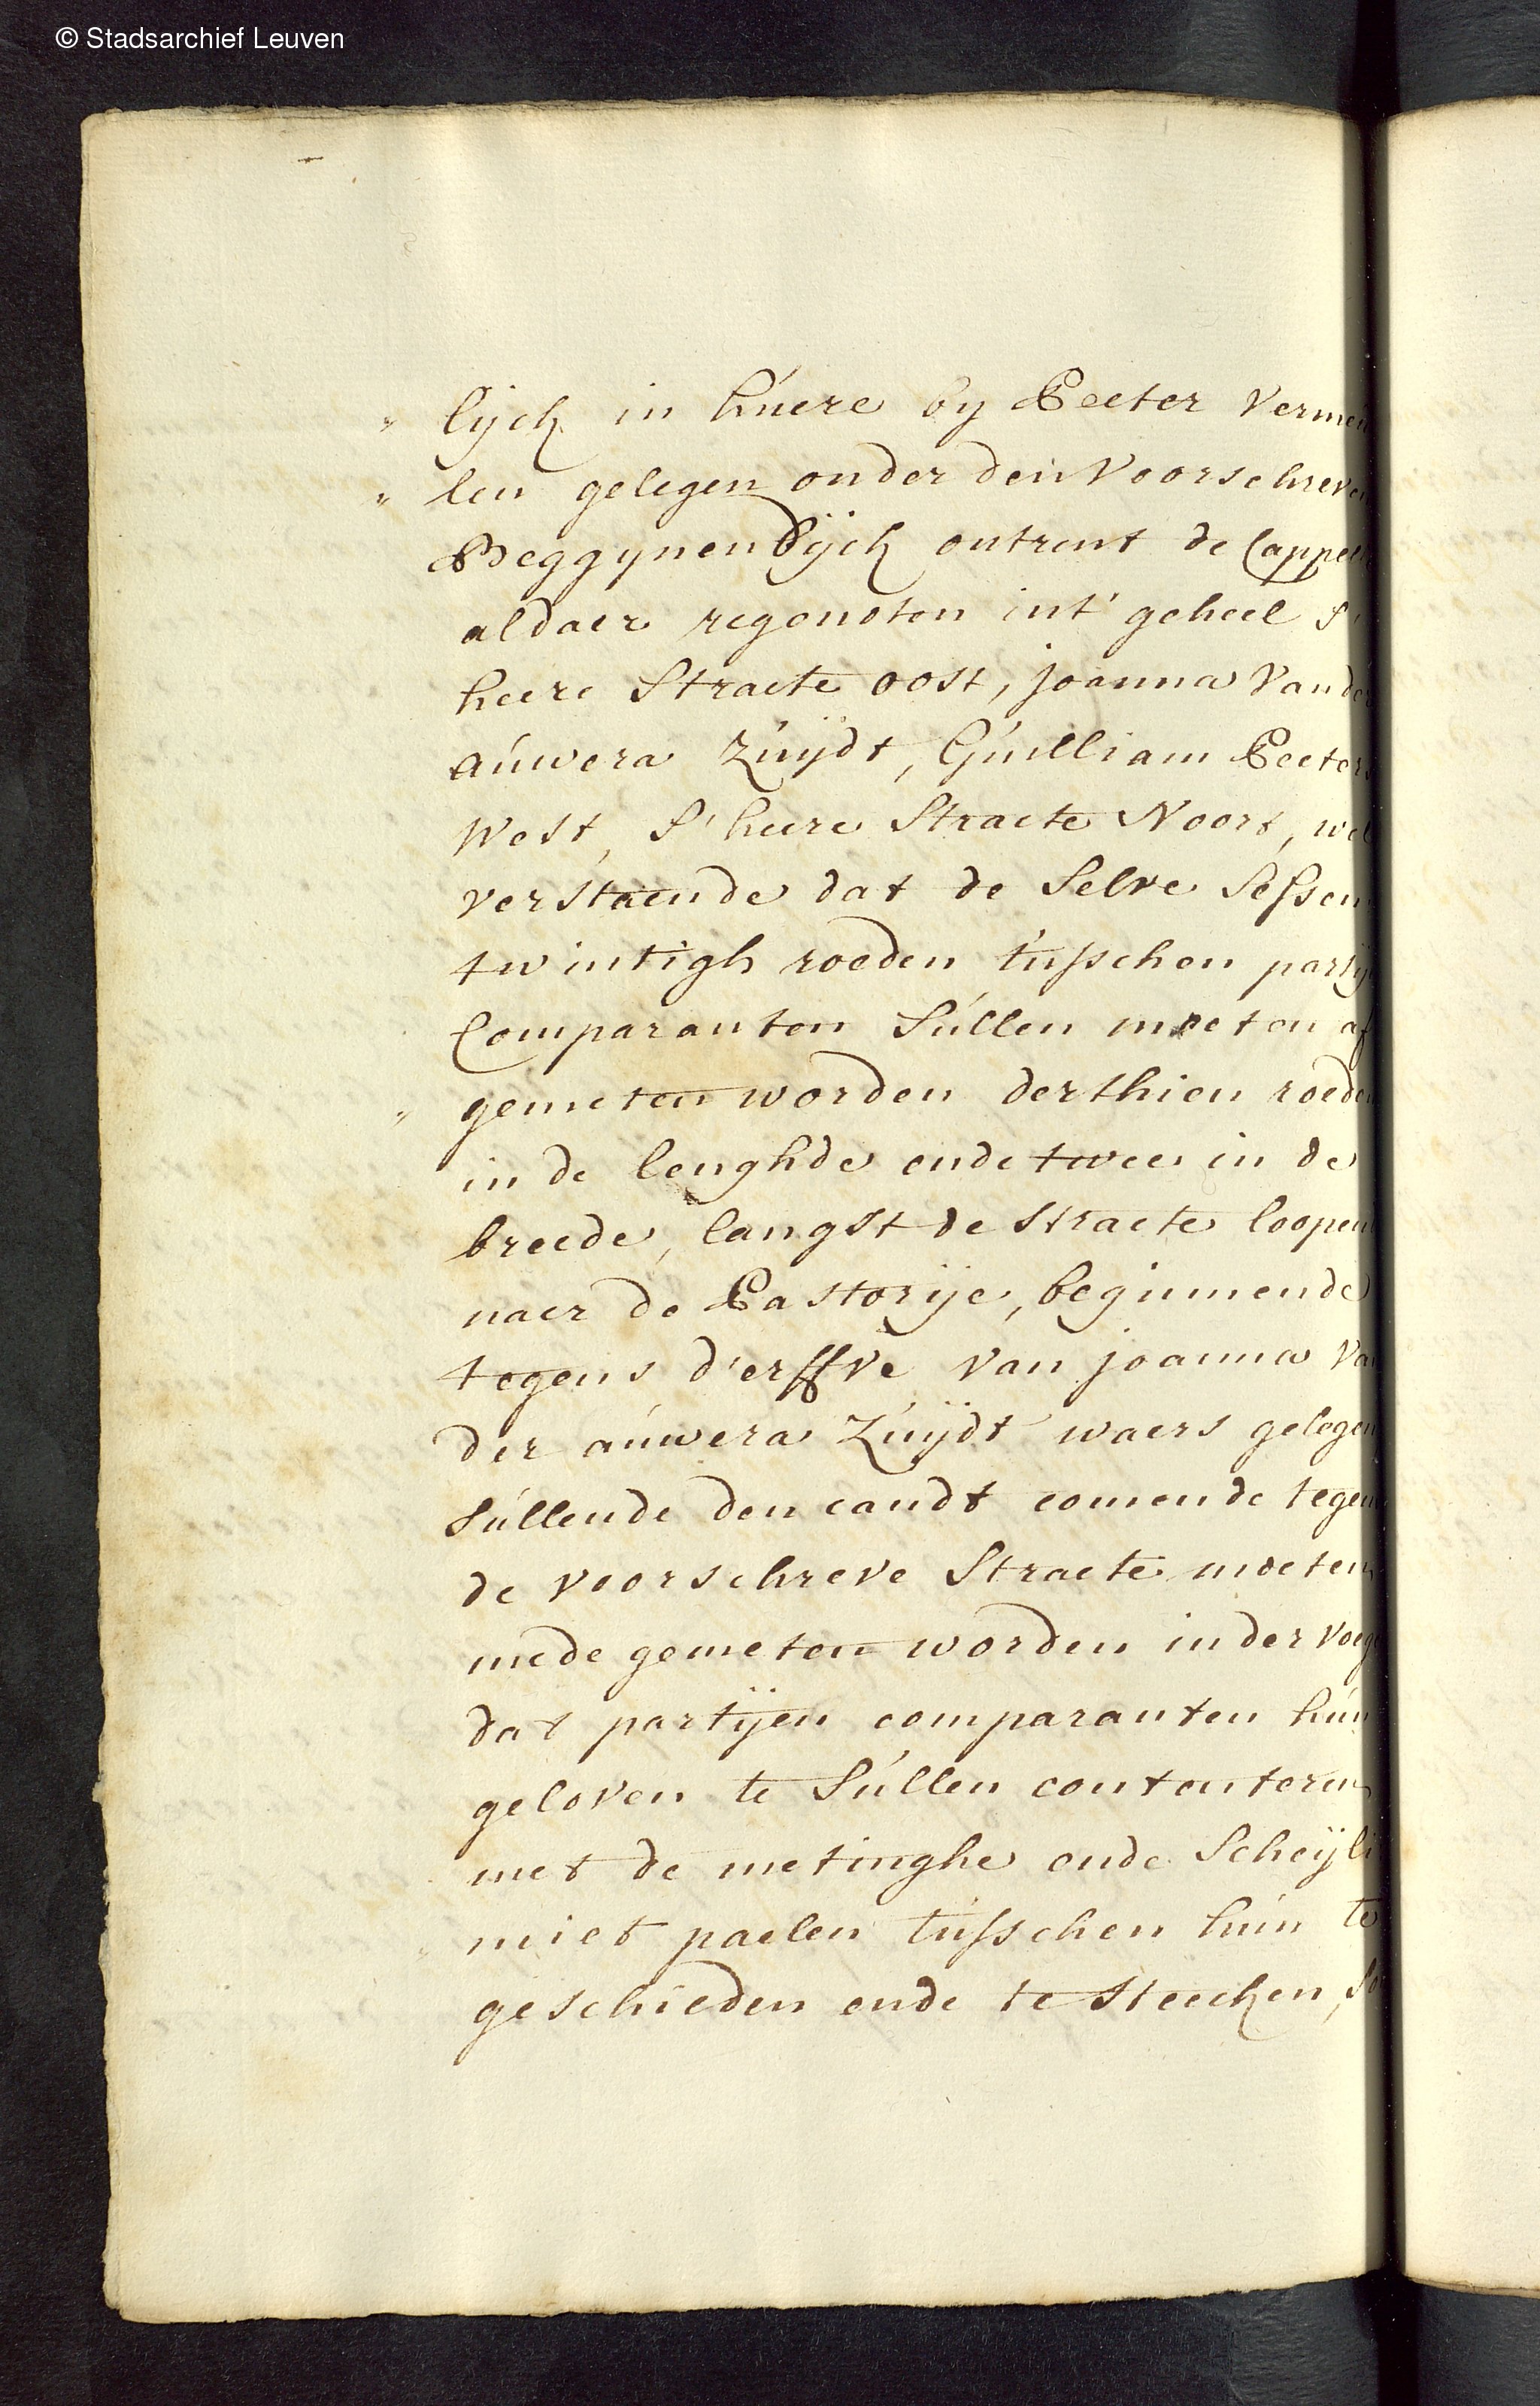 © Stadsarchief Leuven
lijck in húere by Peeter Vermeú
len gelegen onder den Voorschreve
Beggynendijck ontrent de Cappel
aldaer regenoten int' geheel S'
heere Straete oost, joanna Vander
aúwera Zúijdt, Gúilliam Peeters
West, S'heere Straete Noort, wel
verstaende dat de Selve Sessen
twintigh roeden tússchen partij
Comparanten Súllen moeten af
gemeten worden derthien roeden
in de lenghde ende twee in de
breede, langst de straete loopen
naer de Pastorije, beginnende
tegens d'erffve van joanna Van
der aúwera Zúijdt waers gelegen
Súllende den candt comende tegen
de voorschreve Straete moeten
mede gemeten worden in der voeg
dat partijen comparanten hún
geloven te Súllen contenteren
met de metinghe ende Scheijli
miet paelen tússchen hún te
geschieden ende te steecken, so